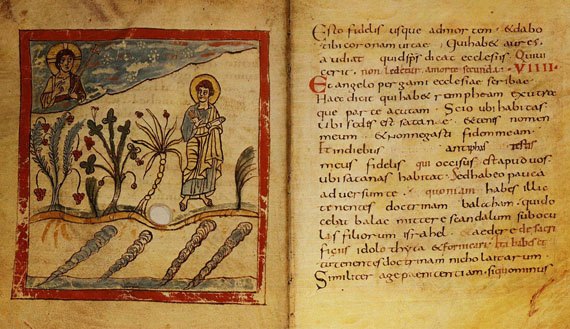 Esto fidelis usque ad mortem . & dabo
tibi coronam vitae . Qui hab& aures .
audiat quid sps dicat ecclesiis Qui vi
cerit . non ledetur a morte secunda . VIIII .
Et angelo pergami ecclesiae scribae
Haec dicit qui hab& rompheam ex utra
que parte acutam . Scio ubi habitas
ubi sedis est satanae . & tenes nomen
meum . & non negasti fidem meam .
Et in diebus antiphas testis
meus fidelis qui occisus est apud vos
ubi satanas habitat . Sed habeo pauca
adversum te . quoniam habes illic
tenentes doctrinam balaham . qui do
cebat balac mittere scandalum sub ocu
lis filiorum israhel . & aedere de sacri
ficiis idolothyta & fornicari ita habes et
tu tenentes doctrinam nicholaitarum
Similiter age paenitentiam . si quominus